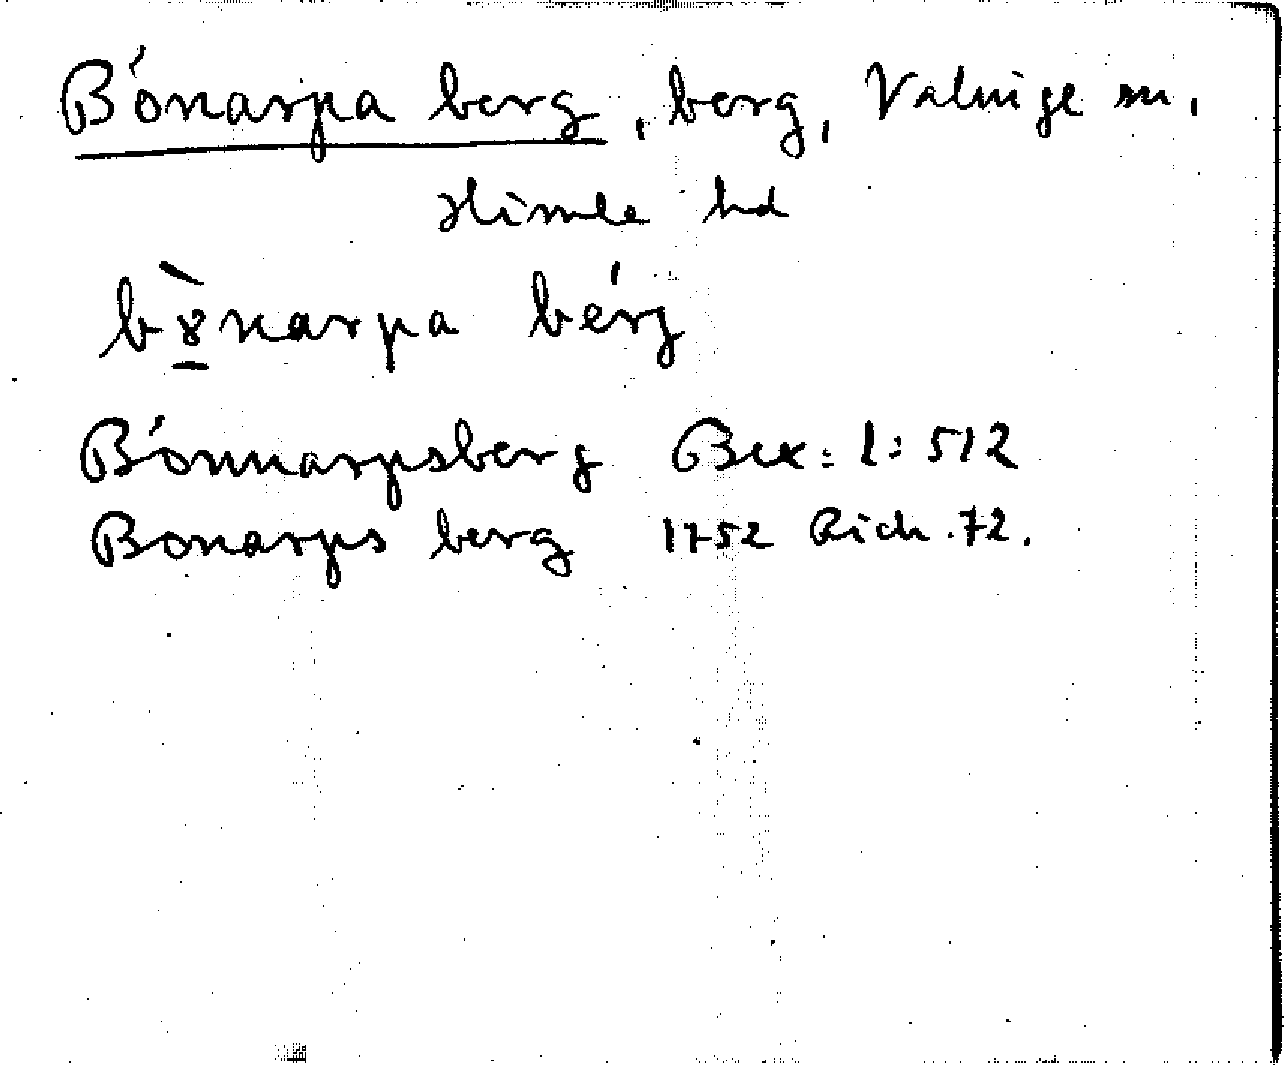 Bónarpa berg, berg, Valinge sn.
Himle hd
bònarpa bérg
Bónnarpsberg Bex: 1: 512
Bonarps berg 1752 Rich. 72.